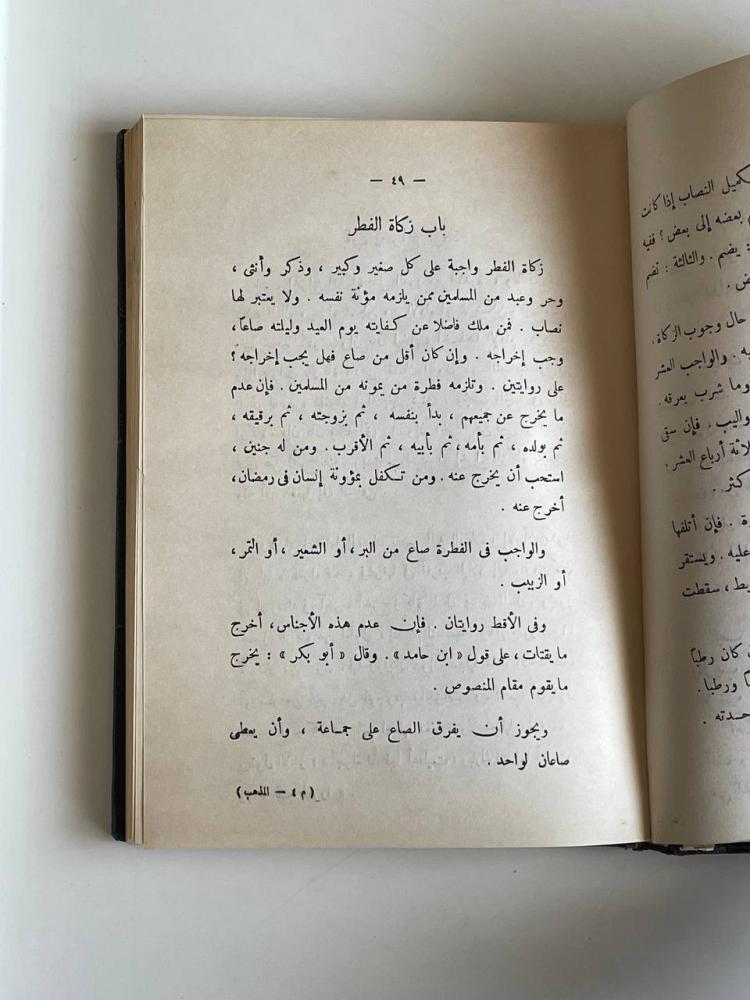 تكميل النصاب إذا كانت
بعضه إلى بعض ؟ ففيه
: يضم . والثالثة : تضم
حال وجوب الزكاة .
والواجب العشر
وما شرب بعرقه .
فإن سقى
ثلاثة أرباع العشر .
فإن أتلفها
عليه . ويستقر
سقطت
كان رطباً
ورطبا .
حدته .
— ٤٩ —
باب زكاة الفطر
زكاة الفطر واجبة على كل صغير وكبير ، وذكر وأنثى ،
وحر وعبد من المسلمين ممن يلزمه مؤنة نفسه . ولا يعتبر لها
نصاب . فمن ملك فاضلا عن كفايته يوم العيد وليلته صاعاً ،
وجب إخراجه . وإن كان أقل من صاع فهل يجب إخراجه ؟
على روايتين . وتلزمه فطرة من يمونه من المسلمين . فإن عدم
ما يخرج عن جميعهم ، بدأ بنفسه ، ثم بزوجته ، ثم برقيقه ،
ثم بولده ، ثم بأمه ، ثم بأبيه ، ثم الأقرب . ومن له جنين ،
استحب أن يخرج عنه . ومن تكفل بمؤونة إنسان فى رمضان ،
أخرج عنه .
والواجب فى الفطرة صاع من البر ، أو الشعير ، أو التمر ،
أو الزبيب .
وفى الأقط روايتان . فإن عدم هذه الأجناس ، أخرج
ما يقتات ، على قول « ابن حامد » . وقال « أبو بكر » : يخرج
ما يقوم مقام المنصوص .
ويجوز أن يفرق الصاع على جماعة ، وأن يعطى
صاعان لواحد .
( م ٤ — المذهب )